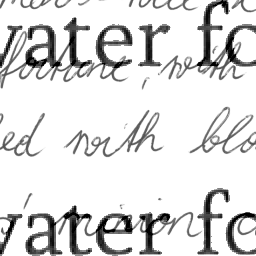 water fo
fortune, with
ed with blo
water fo
minion